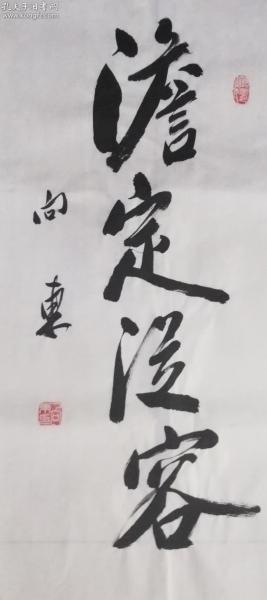 澹定從容
向東
孔夫子旧书网